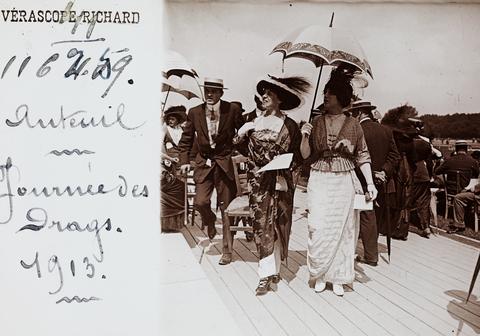 VÉRASCOPE RICHARD
116 459.
Auteuil
Journée des
Drags.
1913.